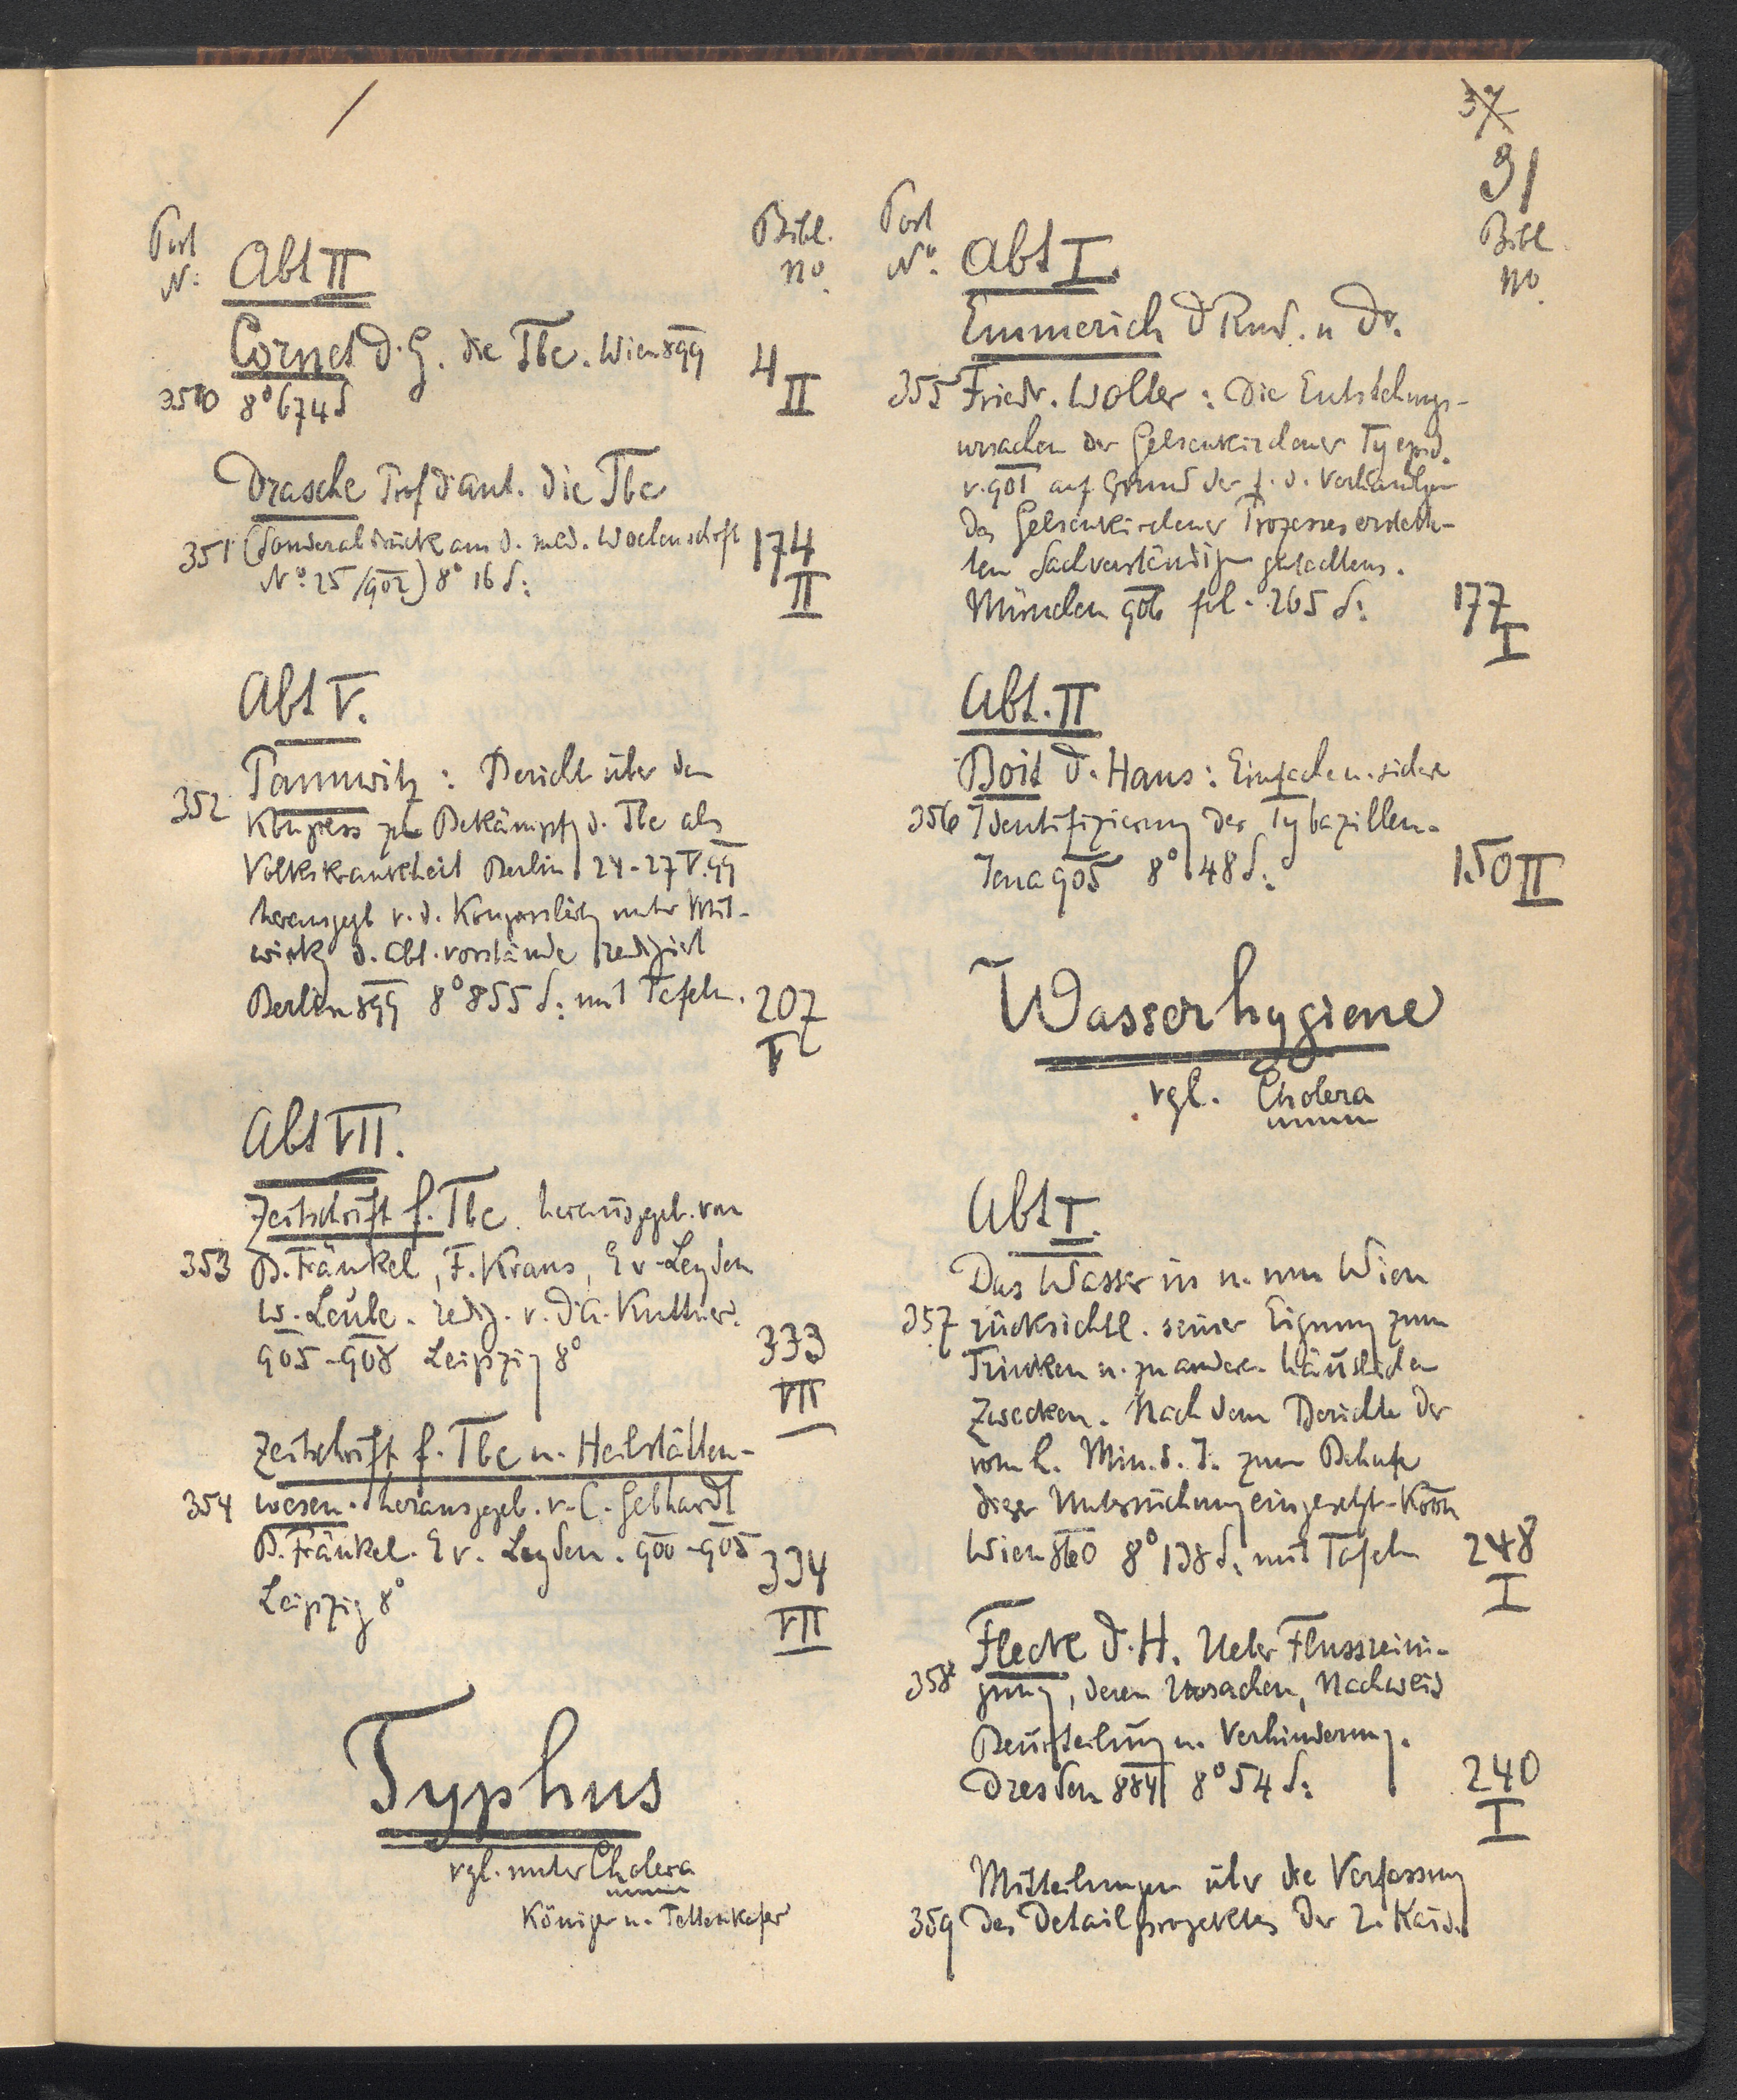 37
91
Post
No.
Bibl.
no.
Abt II
Cornet D. G. die Tbc. Wien 899
4
II
350
8° 674 S
Drasche Prof D Ant. Die Tbc
351 (Sonderabdrück aus d. med. Wochenschrft
174
II
No. 25/902) 8° 16 S:
Abt V.
352
Pannwitz : Bericht über den
Kongress zur Bekämpfg d. Tbc als
Volkskrankheit Berlin 24-27 V. 99
herausgegb v. d. Kongressleitg unter Mit-
wirkg d. Abt. vorstände redigiert
Berlin 899 8° 855 S: mit Tafeln.
207
V
Abt VII.
Zeitschrift f. Tbc. herausgegeb. von
353 B. Fränkel, F. Kraus, E v. Leyden
W. Leube. redig. v. D A. Kuttner.
905-908 Leipzig 8°
333
VII
Zeitschrift f. Tbc u. Heilstätten-
354 wesen. herausgegeb. v. C. Gebhardt
B. Fränkel. E v. Leyden. 900-905
Leipzig 8°
334
VII
Typhus
vgl. unter Cholera
Königer u. Pettenkofer
Post
No.
Bibl.
no.
Abt I.
Emmerich D Rud. u Dr.
355 Friedr. Wolter : Die Entstehungs-
ursachen der Gelsenkirchener Ty epid.
v. 901 auf Grund der f. d. Verhandlgen
des Gelsenkirchener Prozesses erstatte-
ten Sachverständigen gutachtens.
München 906 fol. 265 S:
177
I
Abt. II
Boit D. Hans : Einfache u. sichere
356 Identifizierung des Ty bazillen.
Jena 905 8° 48 S:
150 II
Wasserhygiene
vgl. Cholera
Abt I.
Das Wasser in u. um Wien
357 rücksichtl. seiner Eignung zum
Trinken u. zu anderen häuslichen
Zwecken. Nach dem Berichte der
vom h. Min. d. I. zum Behufe
dieser Untersuchung eingesetzt. Komm
Wien 860 8° 138 S: mit Tafeln
248
I
Fleck D. H. Ueber Flussreini-
358 gung, deren Ursachen, Nachweis
Beurteilung u. Verhinderung.
Dresden 884 8° 54 S:
240
I
Mitteilungen über die Verfassung
359 des Detailprojektes der 2. Kais.